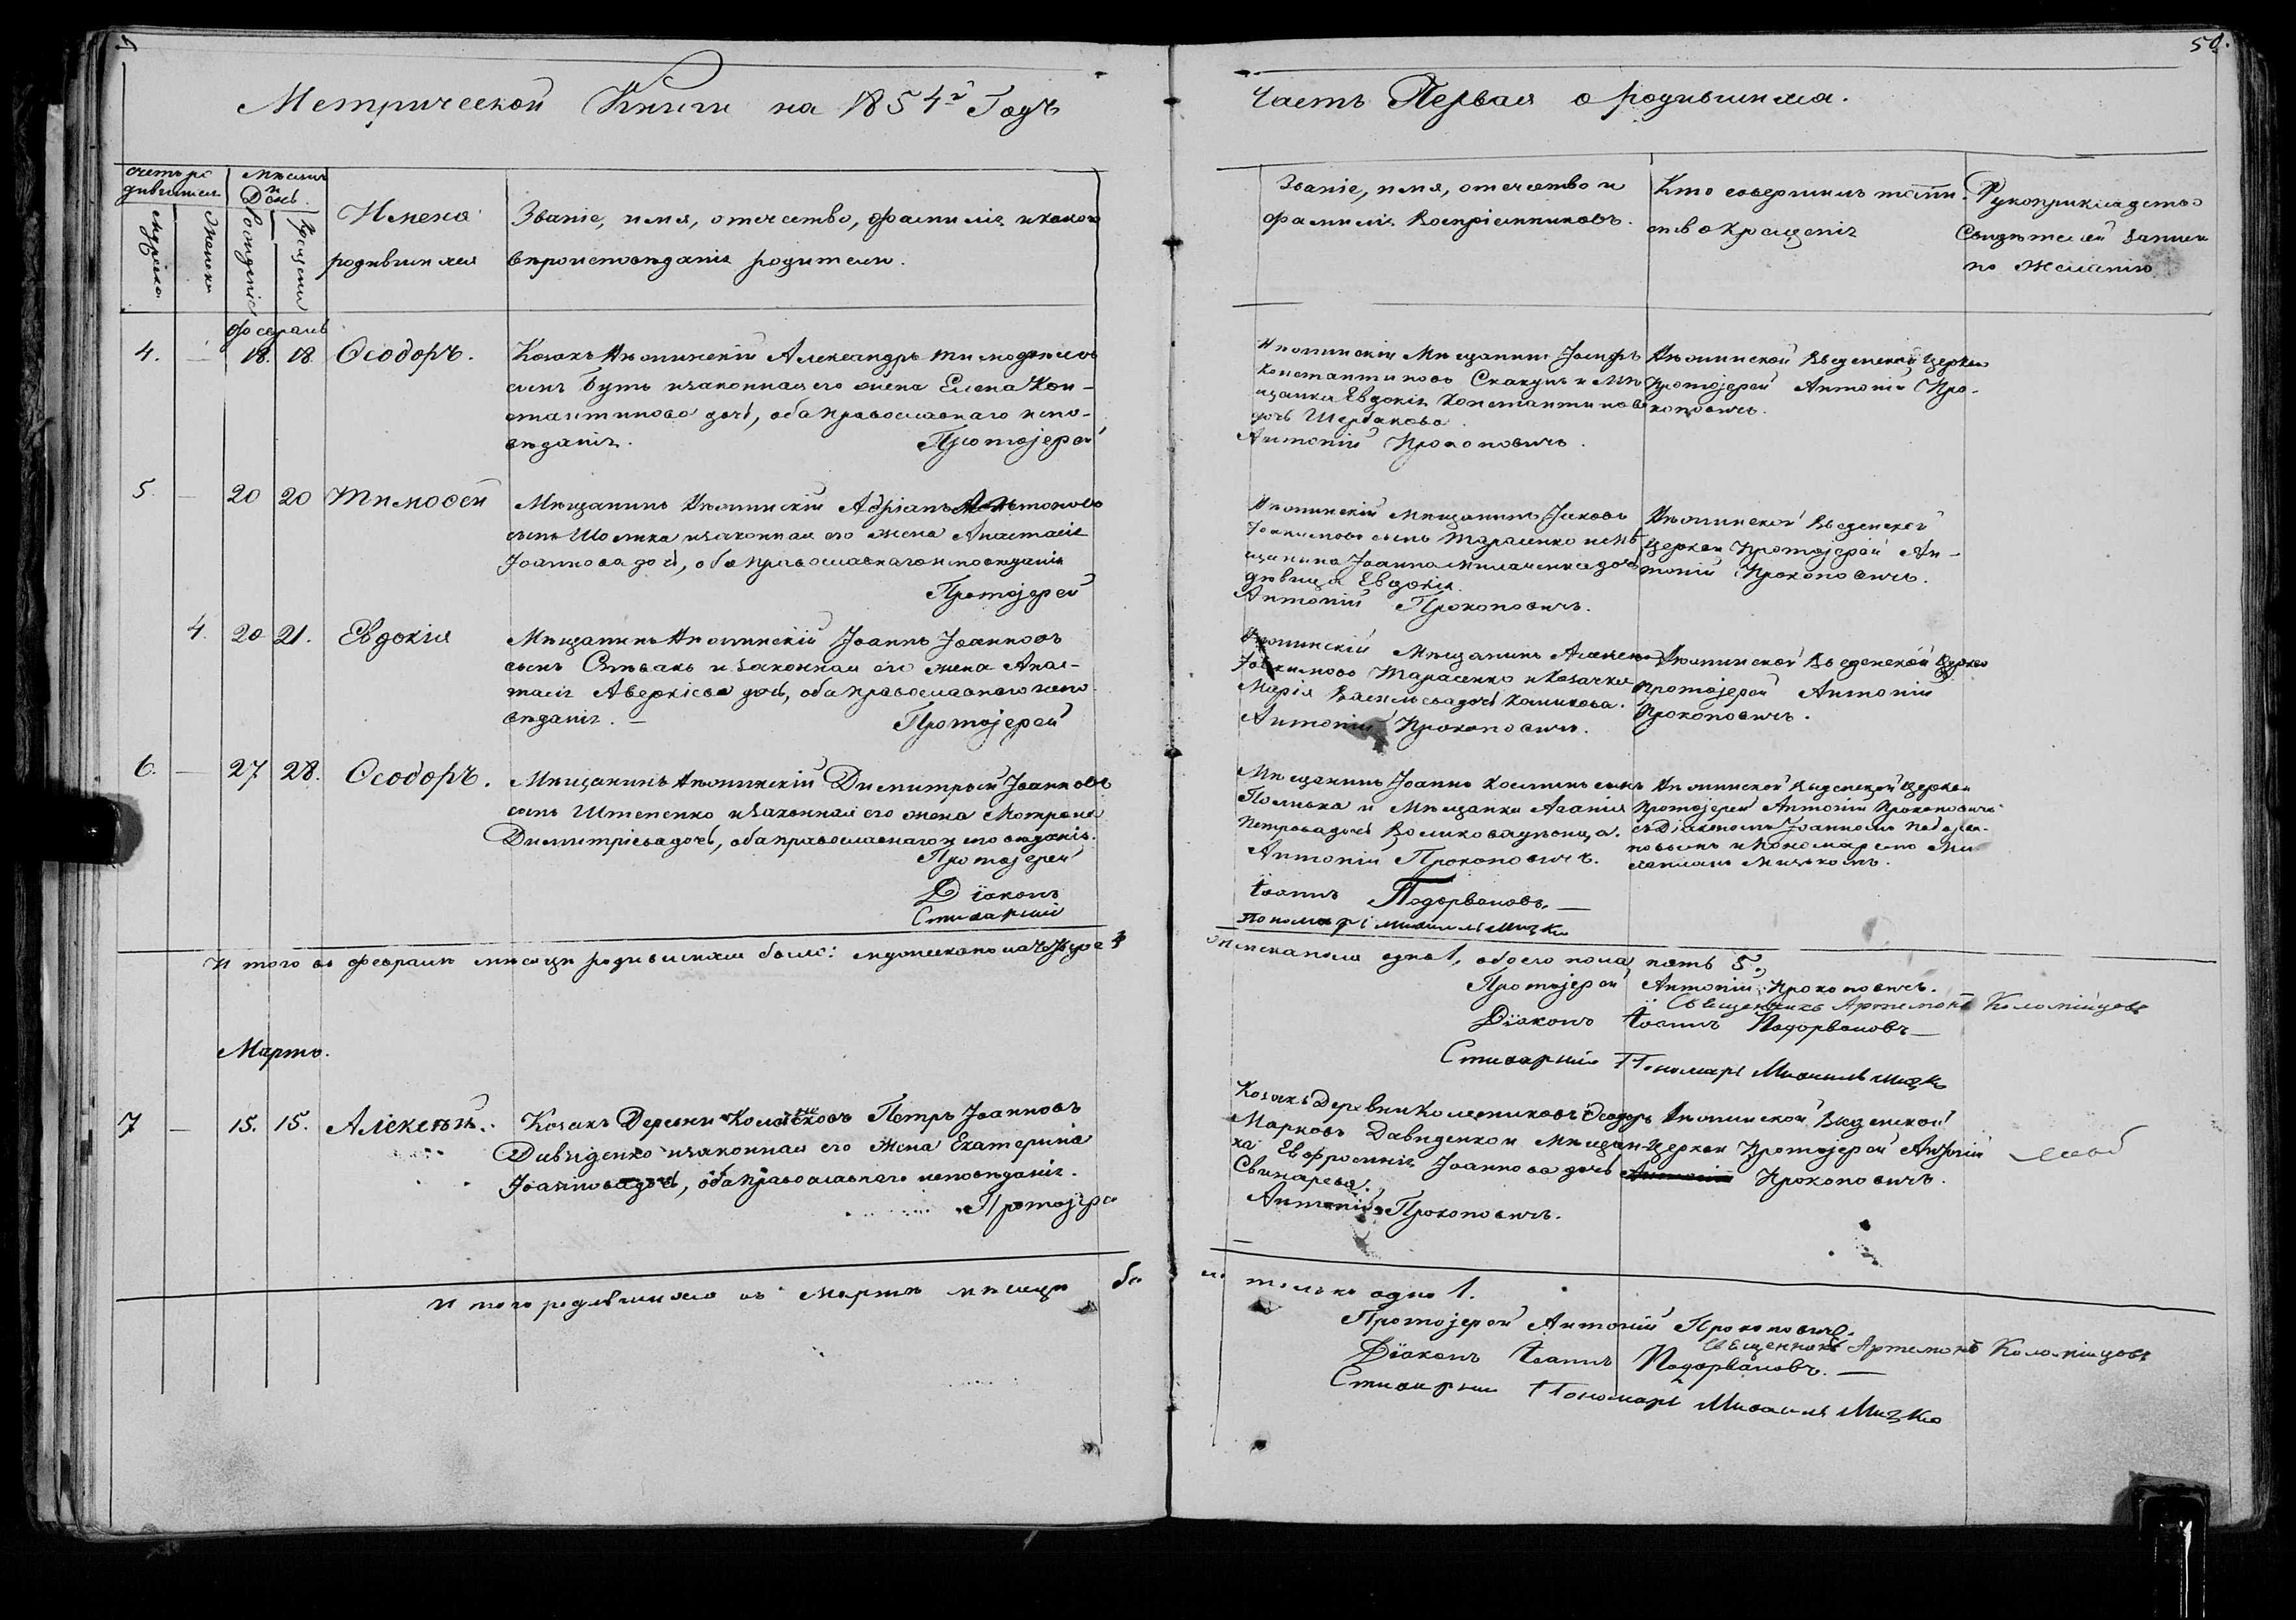 50.
Метрической Книги на 1854й Годъ
Часть Первая о родившихся.
Счетъ родившихся
Мѣсяцъ и День.
Мужеска
Женска
Рожденія
Крещенія
Имена родившихся
Званіе, имя, отчество, фамилія и какого
вѣроисповѣданія родители.
Званіе, имя, отчество и
фамилія Воспріемниковъ.
Кто совершилъ таин-
ство Крещенія
Рукоприкладство
Свидѣтелей записи
по желанію
Февраль
4. — 18. 18 Ѳеодоръ.
Козакъ Александръ Тимофеевъ
сынъ Бутъ и законная его жена Елена Кон-
стантинова дочь, оба православнаго испо-
вѣданія. Протоіерей
Мѣщанинъ Іосифъ
Константиновъ Скакунъ и Мѣ-
щанка Евдокія Константинова
дочь Щербакова.
Антоній Прокоповичъ.
Введенской Церкви
Протоіерей Антоній Про-
коповичъ.
5. — 20 20 Тимоѳей
Мѣщанинъ Адріанъ
сынъ и законная его жена Анастасія
Іоаннова дочь, оба православнаго исповѣданія
Протоіерей
Мѣщанинъ Іаковъ
Іоакимовъ сынъ Тарасенко и Мѣ-
щанина Іоанна дочь
дѣвица Евдокія.
Антоній Прокоповичъ.
Введенской
Церкви Протоіерей Ан-
тоній Прокоповичъ.
4. 20 21. Евдокія
Мѣщанинъ Іоаннъ Іоанновъ
сынъ Спѣвакъ и законная его жена Анас-
тасія Аверкіева дочь, оба православнаго испо-
вѣданія. — Протоіерей
Мѣщанинъ
Іоакимовъ Тарасенко и Козачка
Марія Васильева дочь
Антоній Прокоповичъ.
Введенской Церкви
Протоіерей Антоній
Прокоповичъ.
6. — 27 28. Ѳеодоръ.
Мѣщанинъ Димитрій Іоанновъ
сынъ Штепенко и законная его жена Мотрона
Димитріева дочь, оба православнаго исповѣданія.
Протоіерей
Діаконъ
Стихарный
Мѣщанинъ Іоаннъ Косминъ сынъ
и Мѣщанка Агапія
Петрова дочь
Антоній Прокоповичъ.
Іоаннъ Подорвановъ. —
Пономарь Михаилъ Мизко
Введенской Церкви
Протоіерей Антоній Прокоповичъ
съ Діакономъ Іоанномъ Подорва-
новымъ и Пономаремъ Ми-
хаиломъ Мизкомъ.
И того въ Февралѣ мѣсяцѣ родившихся было: мужеска пола четыре 4
женска пола одна 1, обоего пола пять 5.
Протоіерей Антоній Прокоповичъ.
Священникъ Артемонъ Коломійцовъ
Діаконъ Іоаннъ Подорвановъ —
Стихарный Пономарь Михаилъ Мизко
Мартъ.
7 — 15. 15. Алексѣй.
Козакъ Деревни Петръ Іоанновъ
Давиденко и законная его жена Екатерина
Іоаннова дочь, оба православнаго исповѣданія.
Протоіерей
Козакъ Деревни Ѳеодоръ
Марковъ Давиденко и Мѣщан-
ка Евфросинія Іоаннова дочь
Свинарева.
Антоній Прокоповичъ.
Введенской
Церкви Протоіерей Антоній
Прокоповичъ.
И того родившихся въ Мартѣ мѣсяцѣ бы-
ло только одно 1.
Протоіерей Антоній Прокоповичъ.
Священникъ Артемонъ Коломійцовъ
Діаконъ Іоаннъ Подорвановъ. —
Стихарный Пономарь Михаилъ Мизко